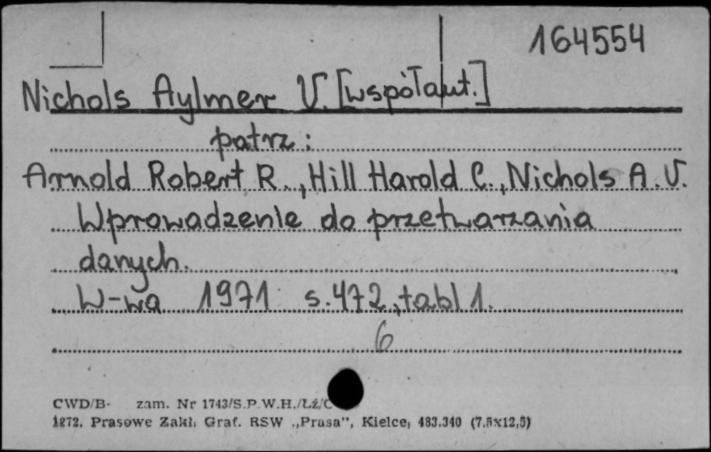 164554
Nichols Aylmer V. [współaut.]
patrz:
Arnold Robert R., Hill Harold C., Nichols A. V.
Wprowadzenie do przetwarzania
danych.
W-wa 1971 s. 472, tabl 1.
6
CWD/B- zam. Nr 1743/S.P.W.H./Łź/C
1272. Prasowe Zakł. Graf. RSW „Prasa", Kielce, 483.340 (7,5x12,5)